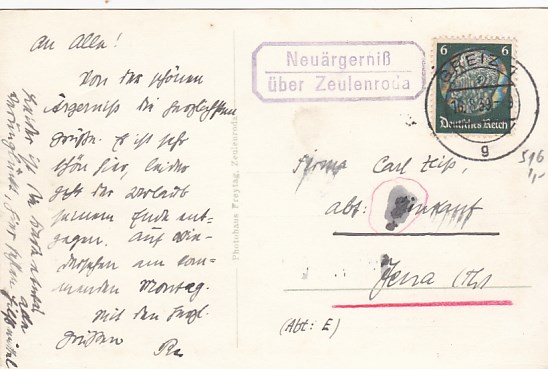 An Alle!
Von der schönen
Ärgerniss die herzlichsten
Grüße. Es ist sehr
schön hier, leider
geht der Urlaub
seinem Ende ent-
gegen. Auf Wie-
dersehen am kom-
menden Montag.
Mit den herzl.
Grüßen
Leider ist die
alle
Photohaus Freytag, Zeulenroda
Neuärgerniß
über Zeulenroda
6 6
Deutsches Reich
GREIZ
g
516
1,-
Firma Carl Zeiß,
Abt: Einkauf
Jena (Th)
(Abt: E)